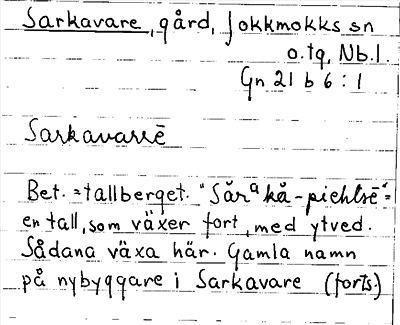 Sarkavare, gård, Jokkmokks sn
o. tg, Nb. l.
Gn 21 b 6 : 1
Sarkavarrē
Bet. = tallberget. "Sărᵃkå-piehtsē" =
en tall, som växer fort, med ytved.
Sådana växa här. Gamla namn
på nybyggare i Sarkavare (forts)